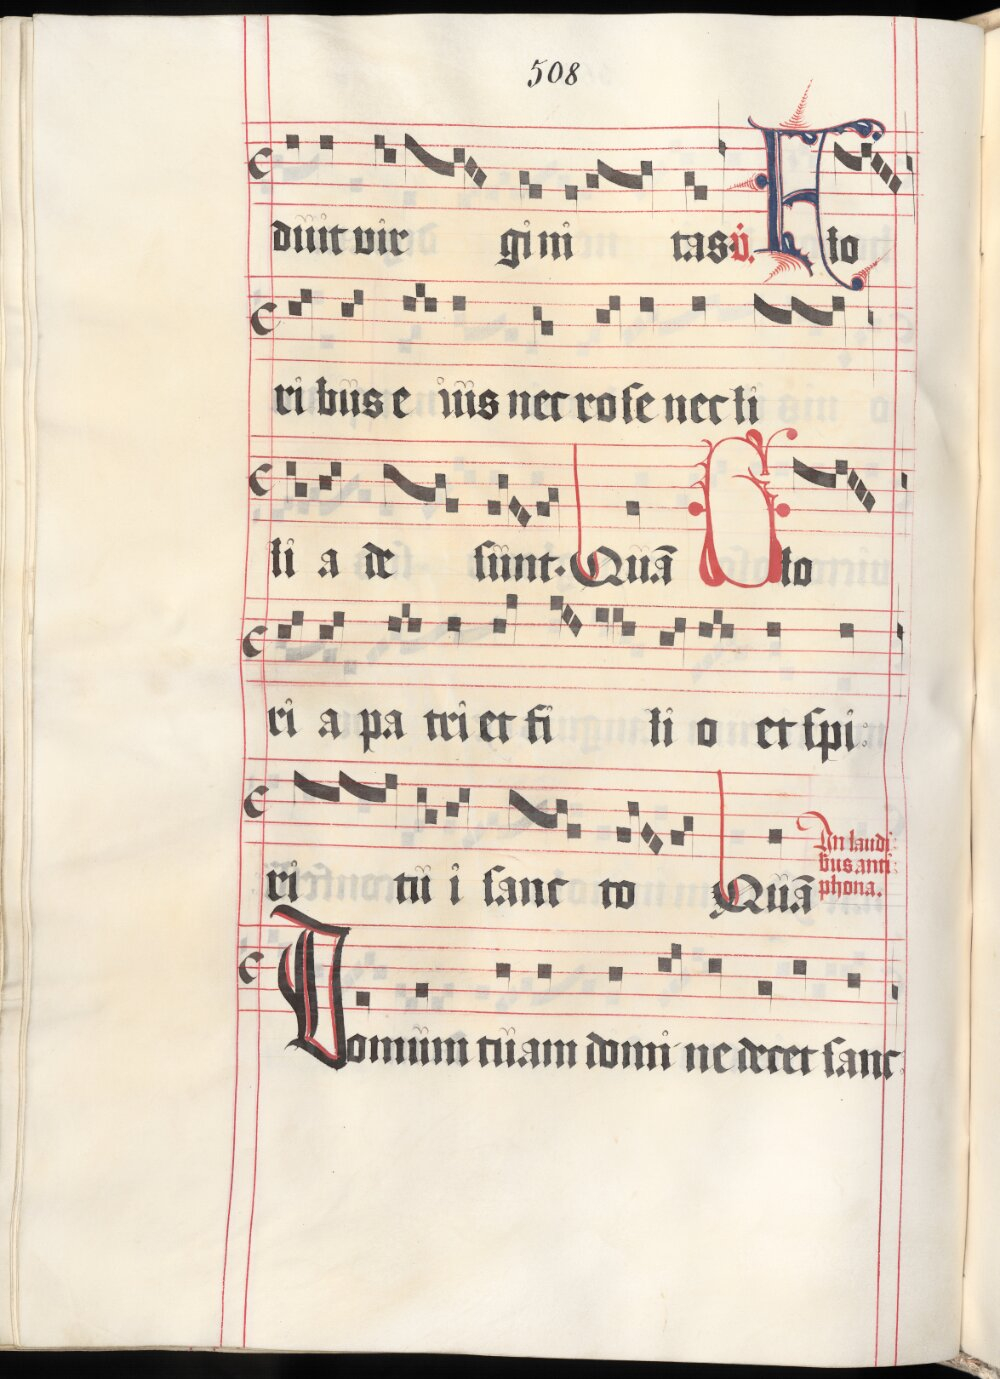 508
diuit vir gi ni tas v. Flo
ri bus e ius nec rose nec li
li a de sunt. Quā Glo
ri a pa tri et fi li o et spi
ri tu i sanc to Quā
In laudi
bus anti
phona.
Domum tuam domi ne decet sanc